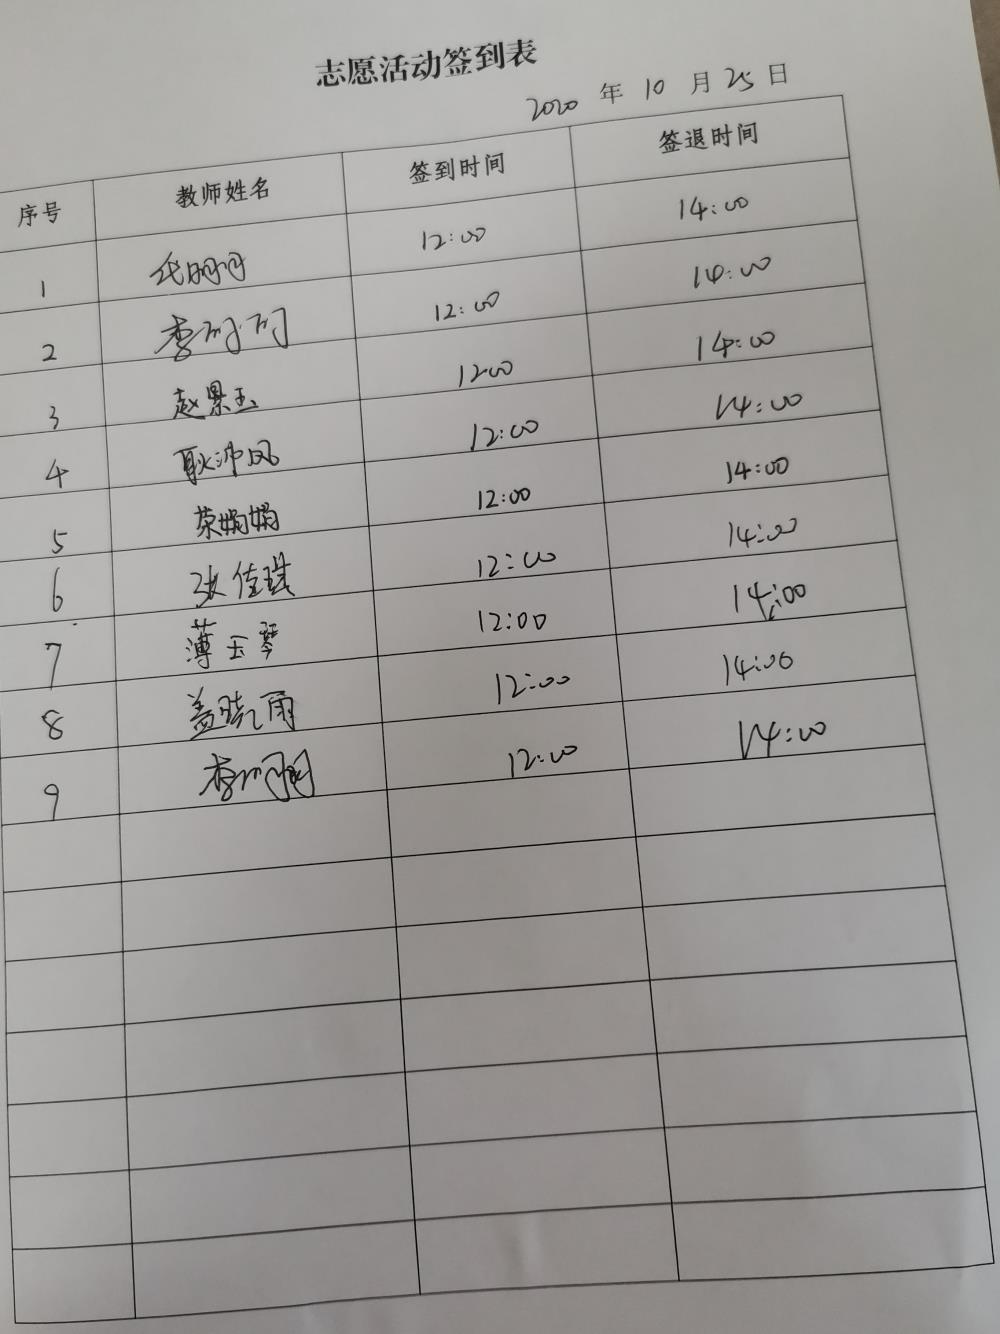 志愿活动签到表
2020 年 10 月 25 日
序号 教师姓名 签到时间 签退时间
1 代明月 12:00 14:00
2 李 12:00 14:00
3 赵景玉 1200 14:00
4 耿沛凤 12:00 14:00
5 荣娟娟 12:00 14:00
6 张佳琪 12:00 14:00
7 薄玉琴 12:00 14:00
8 盖晓雨 12:00 14:00
9 李 12:00 14:00